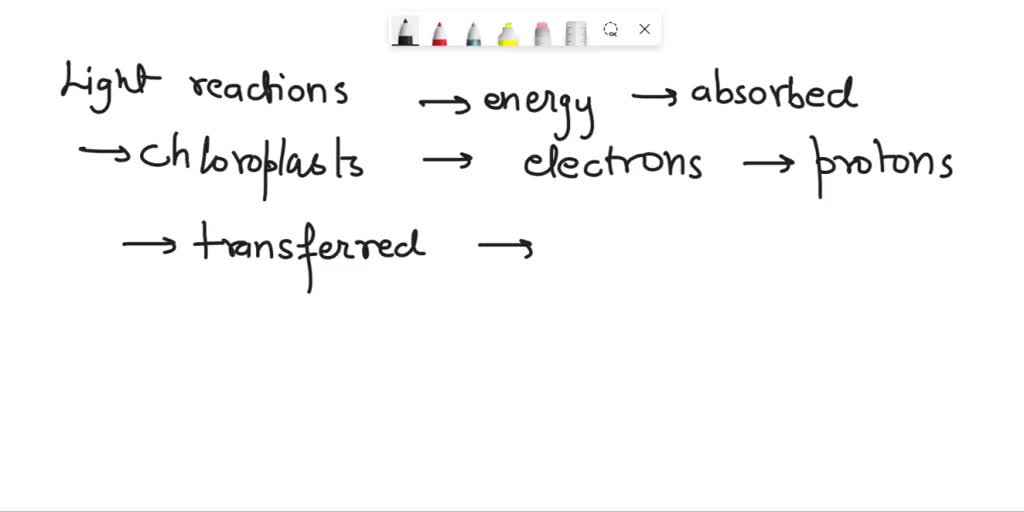 Light reactions → energy → absorbed
→ chloroplasts → electrons → protons
→ transferred →